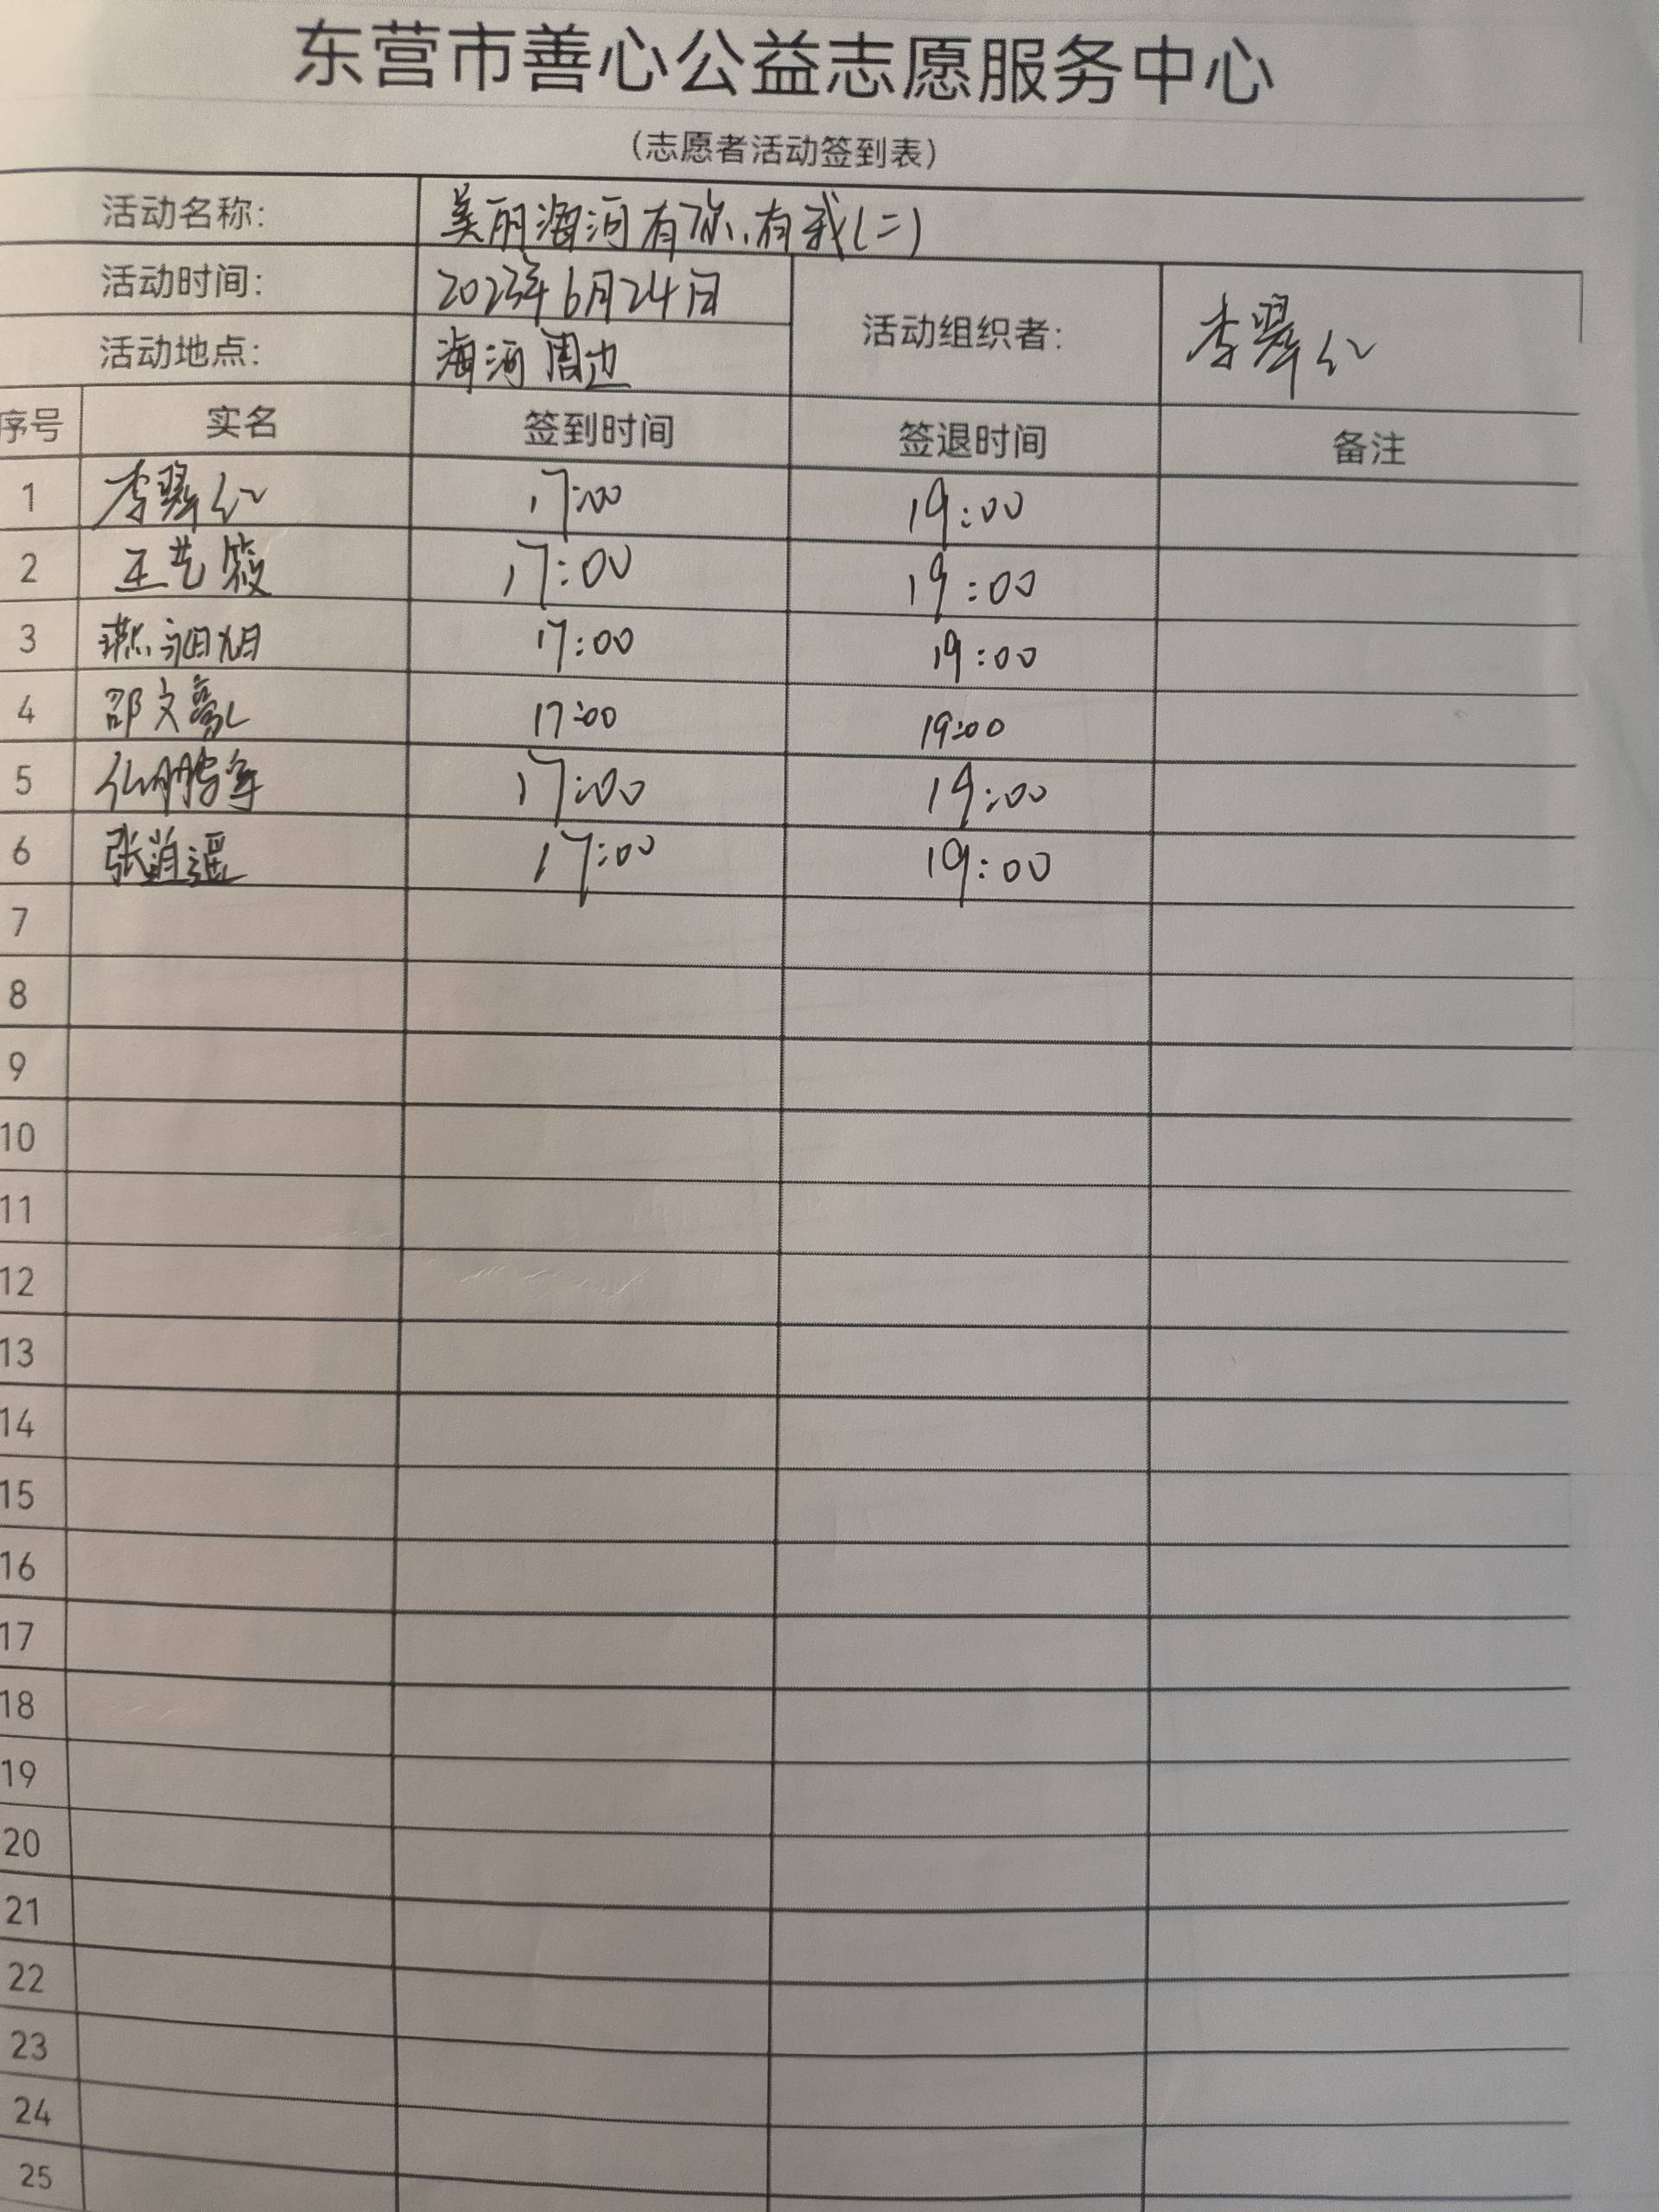 东营市善心公益志愿服务中心
(志愿者活动签到表)
活动名称: 美丽海河有你、有我(二)
活动时间: 2023年6月24日 活动组织者: 李翠红
活动地点: 海河周边
序号 实名 签到时间 签退时间 备注
1 李翠红 17:00 19:00
2 王艺筱 17:00 19:00
3 旭 17:00 19:00
4 邵文 17:00 19:00
5 鹏 17:00 19:00
6 张逍遥 17:00 19:00
7
8
9
10
11
12
13
14
15
16
17
18
19
20
21
22
23
24
25